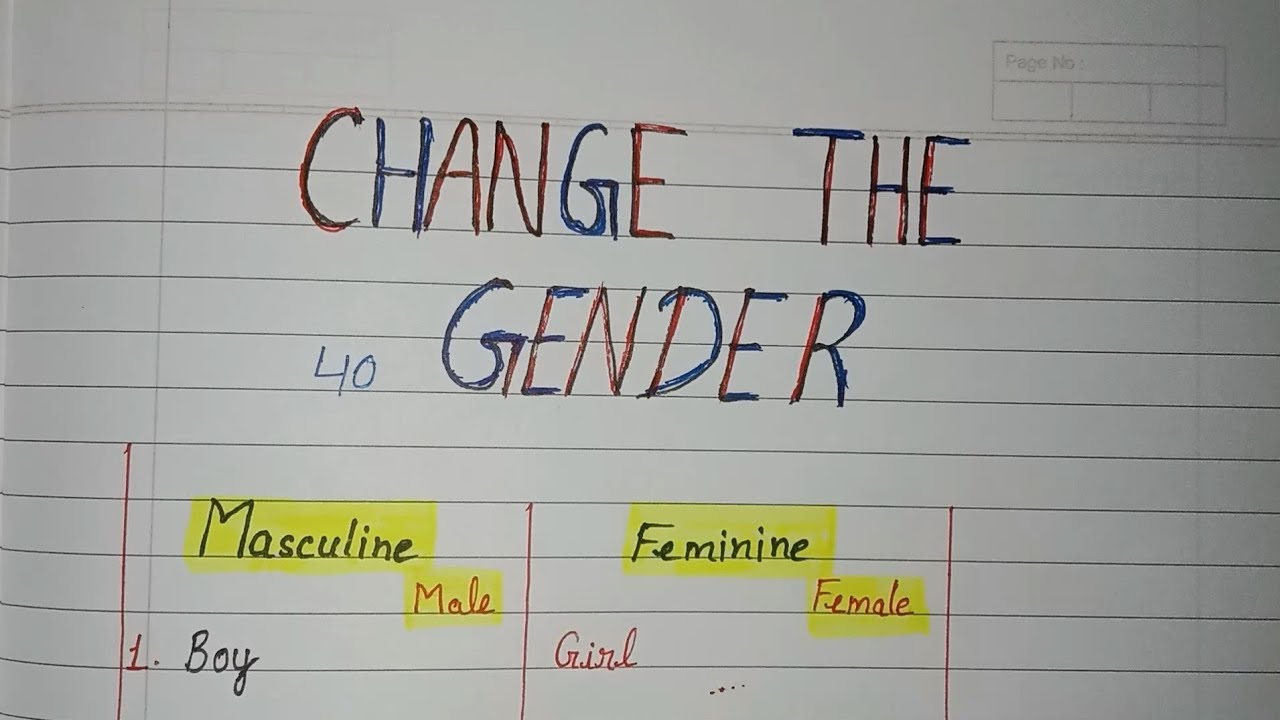 Page No :
CHANGE THE
40 GENDER
Masculine Feminine
Male Female
1. Boy Girl
....